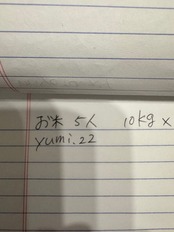 お米 5人 10kg ×
yumi.22